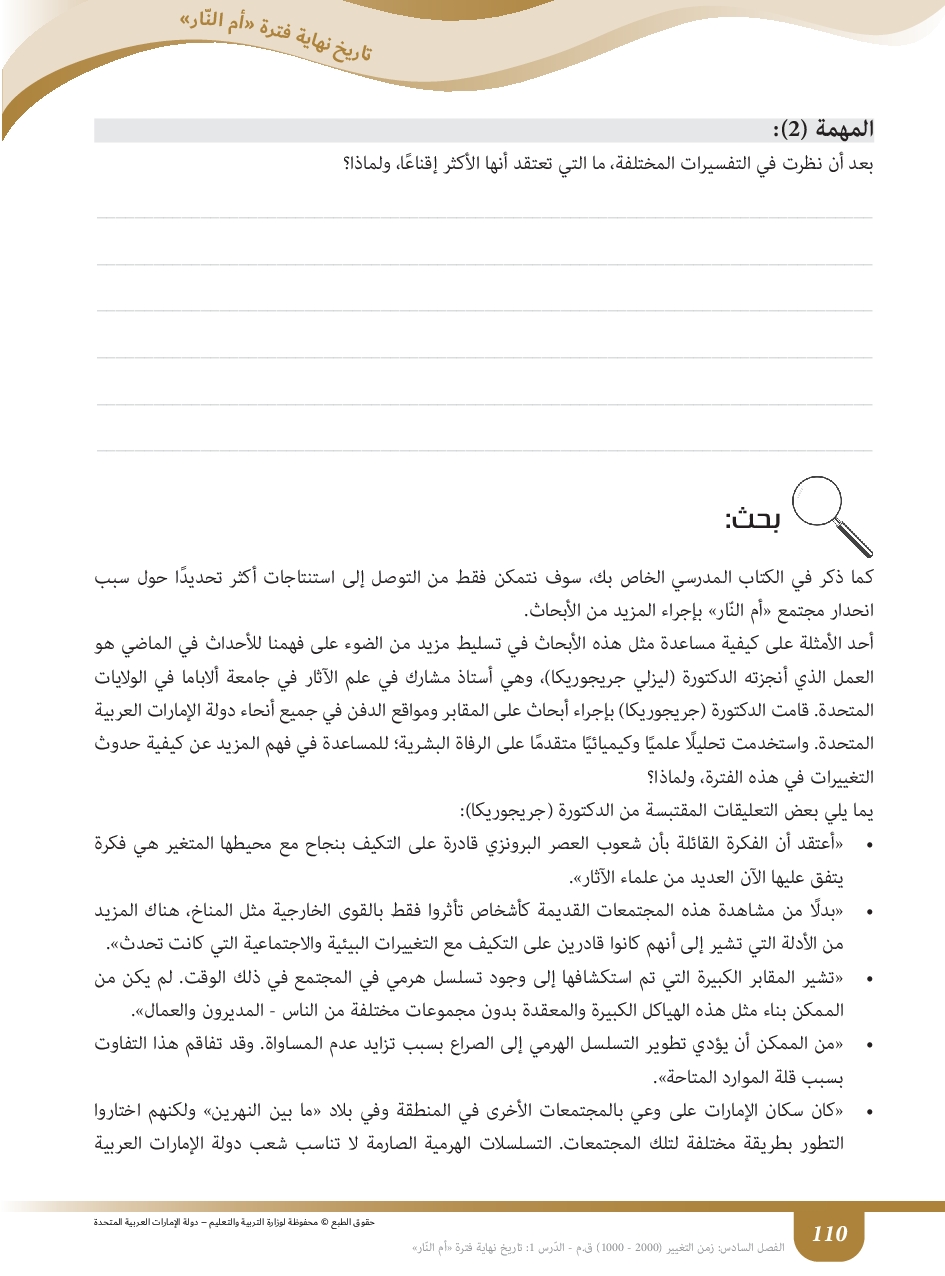 تاريخ نهاية فترة «أم النّار»
المهمة (2):
بعد أن نظرت في التفسيرات المختلفة، ما التي تعتقد أنها الأكثر إقناعًا، ولماذا؟
بحث:
كما ذكر في الكتاب المدرسي الخاص بك، سوف نتمكن فقط من التوصل إلى استنتاجات أكثر تحديدًا حول سبب
انحدار مجتمع «أم النّار» بإجراء المزيد من الأبحاث.
أحد الأمثلة على كيفية مساعدة مثل هذه الأبحاث في تسليط مزيد من الضوء على فهمنا للأحداث في الماضي هو
العمل الذي أنجزته الدكتورة (ليزلي جريجوريكا)، وهي أستاذ مشارك في علم الآثار في جامعة ألاباما في الولايات
المتحدة. قامت الدكتورة (جريجوريكا) بإجراء أبحاث على المقابر ومواقع الدفن في جميع أنحاء دولة الإمارات العربية
المتحدة. واستخدمت تحليلًا علميًا وكيميائيًا متقدمًا على الرفاة البشرية؛ للمساعدة في فهم المزيد عن كيفية حدوث
التغييرات في هذه الفترة، ولماذا؟
يما يلي بعض التعليقات المقتبسة من الدكتورة (جريجوريكا):
• «أعتقد أن الفكرة القائلة بأن شعوب العصر البرونزي قادرة على التكيف بنجاح مع محيطها المتغير هي فكرة
يتفق عليها الآن العديد من علماء الآثار».
• «بدلًا من مشاهدة هذه المجتمعات القديمة كأشخاص تأثروا فقط بالقوى الخارجية مثل المناخ، هناك المزيد
من الأدلة التي تشير إلى أنهم كانوا قادرين على التكيف مع التغييرات البيئية والاجتماعية التي كانت تحدث».
• «تشير المقابر الكبيرة التي تم استكشافها إلى وجود تسلسل هرمي في المجتمع في ذلك الوقت. لم يكن من
الممكن بناء مثل هذه الهياكل الكبيرة والمعقدة بدون مجموعات مختلفة من الناس - المديرون والعمال».
• «من الممكن أن يؤدي تطوير التسلسل الهرمي إلى الصراع بسبب تزايد عدم المساواة. وقد تفاقم هذا التفاوت
بسبب قلة الموارد المتاحة».
• «كان سكان الإمارات على وعي بالمجتمعات الأخرى في المنطقة وفي بلاد «ما بين النهرين» ولكنهم اختاروا
التطور بطريقة مختلفة لتلك المجتمعات. التسلسلات الهرمية الصارمة لا تناسب شعب دولة الإمارات العربية
حقوق الطبع © محفوظة لوزارة التربية والتعليم – دولة الإمارات العربية المتحدة
110
الفصل السادس: زمن التغيير (2000 - 1000) ق.م - الدّرس 1: تاريخ نهاية فترة «أم النّار»